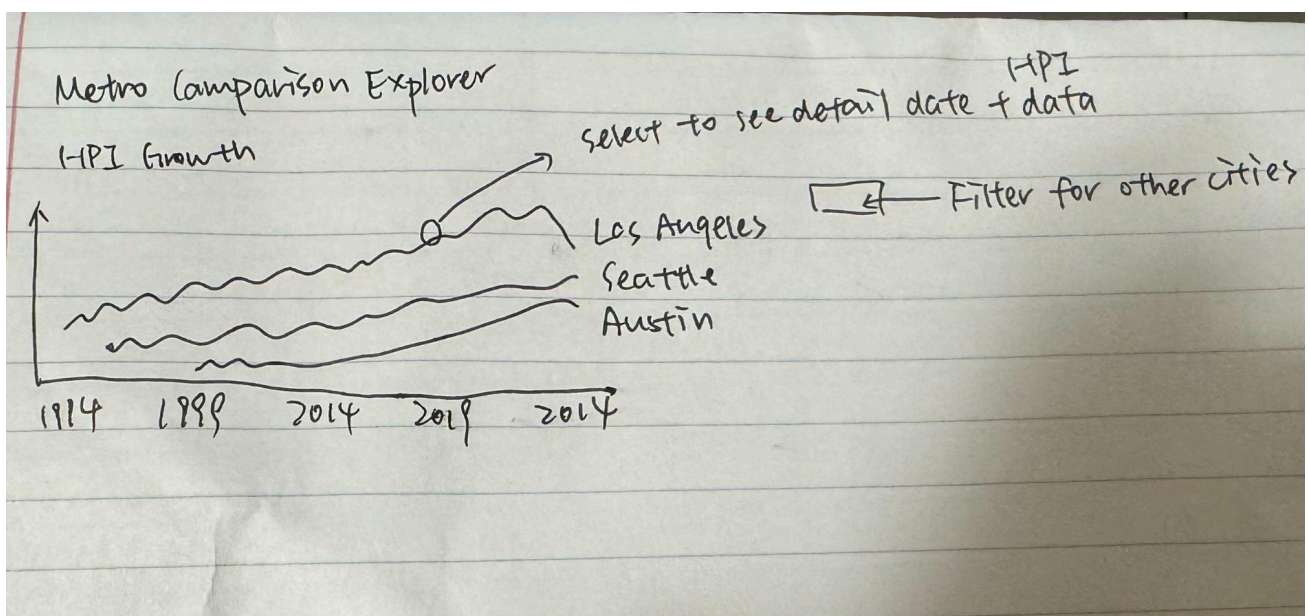 Metro Comparison Explorer
HPI
select to see detail date + data
HPI Growth
Filter for other cities
Los Angeles
Seattle
Austin
1994 1999 2014 2019 2014